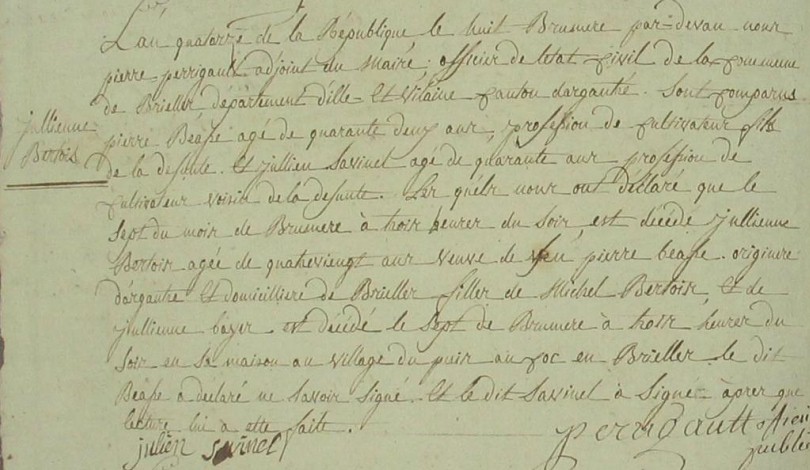 L'an quatorze de la République le huit Brumere par-devan nous
pierre perrigault adjoint du Maire officier de letat civil de la commune
de Brielles département d'ille Et Vilaine canton dargantré. Sont comparus
jullienne
Bertois
pierre Béasse agé de quarante deux ans, profession de cultivateur fils
de la defunte. et jullien Savinel agé de quarante ans profession de
cultivateur voisin de la defunte. Les quéls nous ont déclaré que le
Sept du mois de Brumere à trois heures du Soir, est décéde jullienne
Bertois agée de quatreviengt ans veuve de feu pierre béasse. originere
dargantré Et domicilliere de Brielles filles de Michel Bertois, et de
jullienne bayer. est décédé le sept de Brumere à trois heures du
Soir en sa maison au village du puis au roc en Brielles le dit
Béasse a déclaré ne Savoir Signé. Et le dit Savinel à Signé àpres que
lecture lui a ette faite.
julien savinel
perrigault officier
public